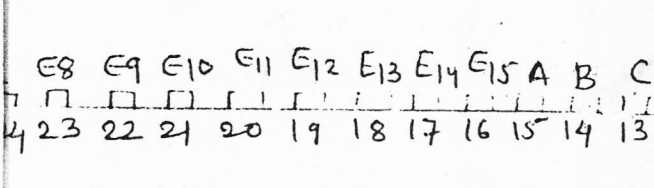 E8 E9 E10 E11 E12 E13 E14 E15 A B C
4 23 22 21 20 19 18 17 16 15 14 13